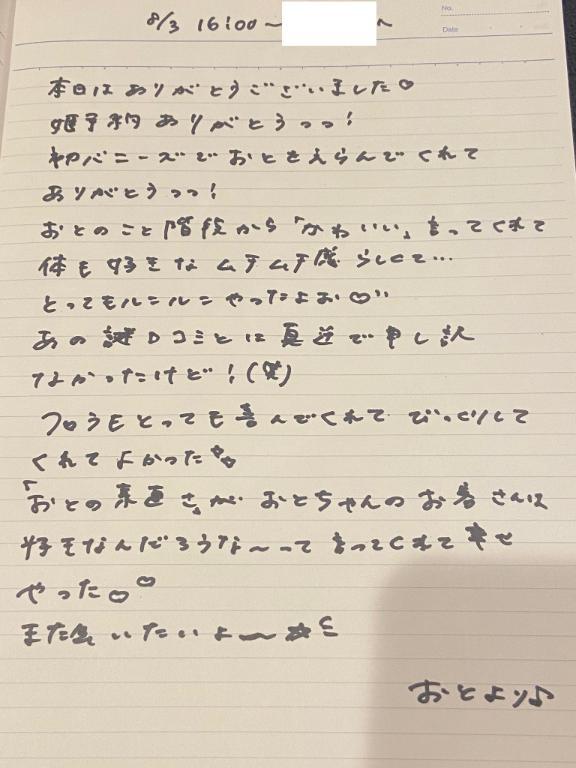 No.
Date
8/3 16:00～ へ
本日はありがとうございました♡
姫予約ありがとうっっ！
初バニーズでおとをえらんでくれて
ありがとうっっ！
おとのこと階段から「かわいい」言ってくれて
体も好きなムチムチ感らしくて…
とってもルンルンやったよお♡
あの謎口コミとは真逆で申し訳
なかったけど！(笑)
フロうもとっても喜んでくれて びっくりして
くれてよかった
「おとの素直さ」が おとちゃんのお客さんは
好きなんだろうな～って言ってくれて幸せ
やった♡♡
また会いたいよ〜
おとより♪